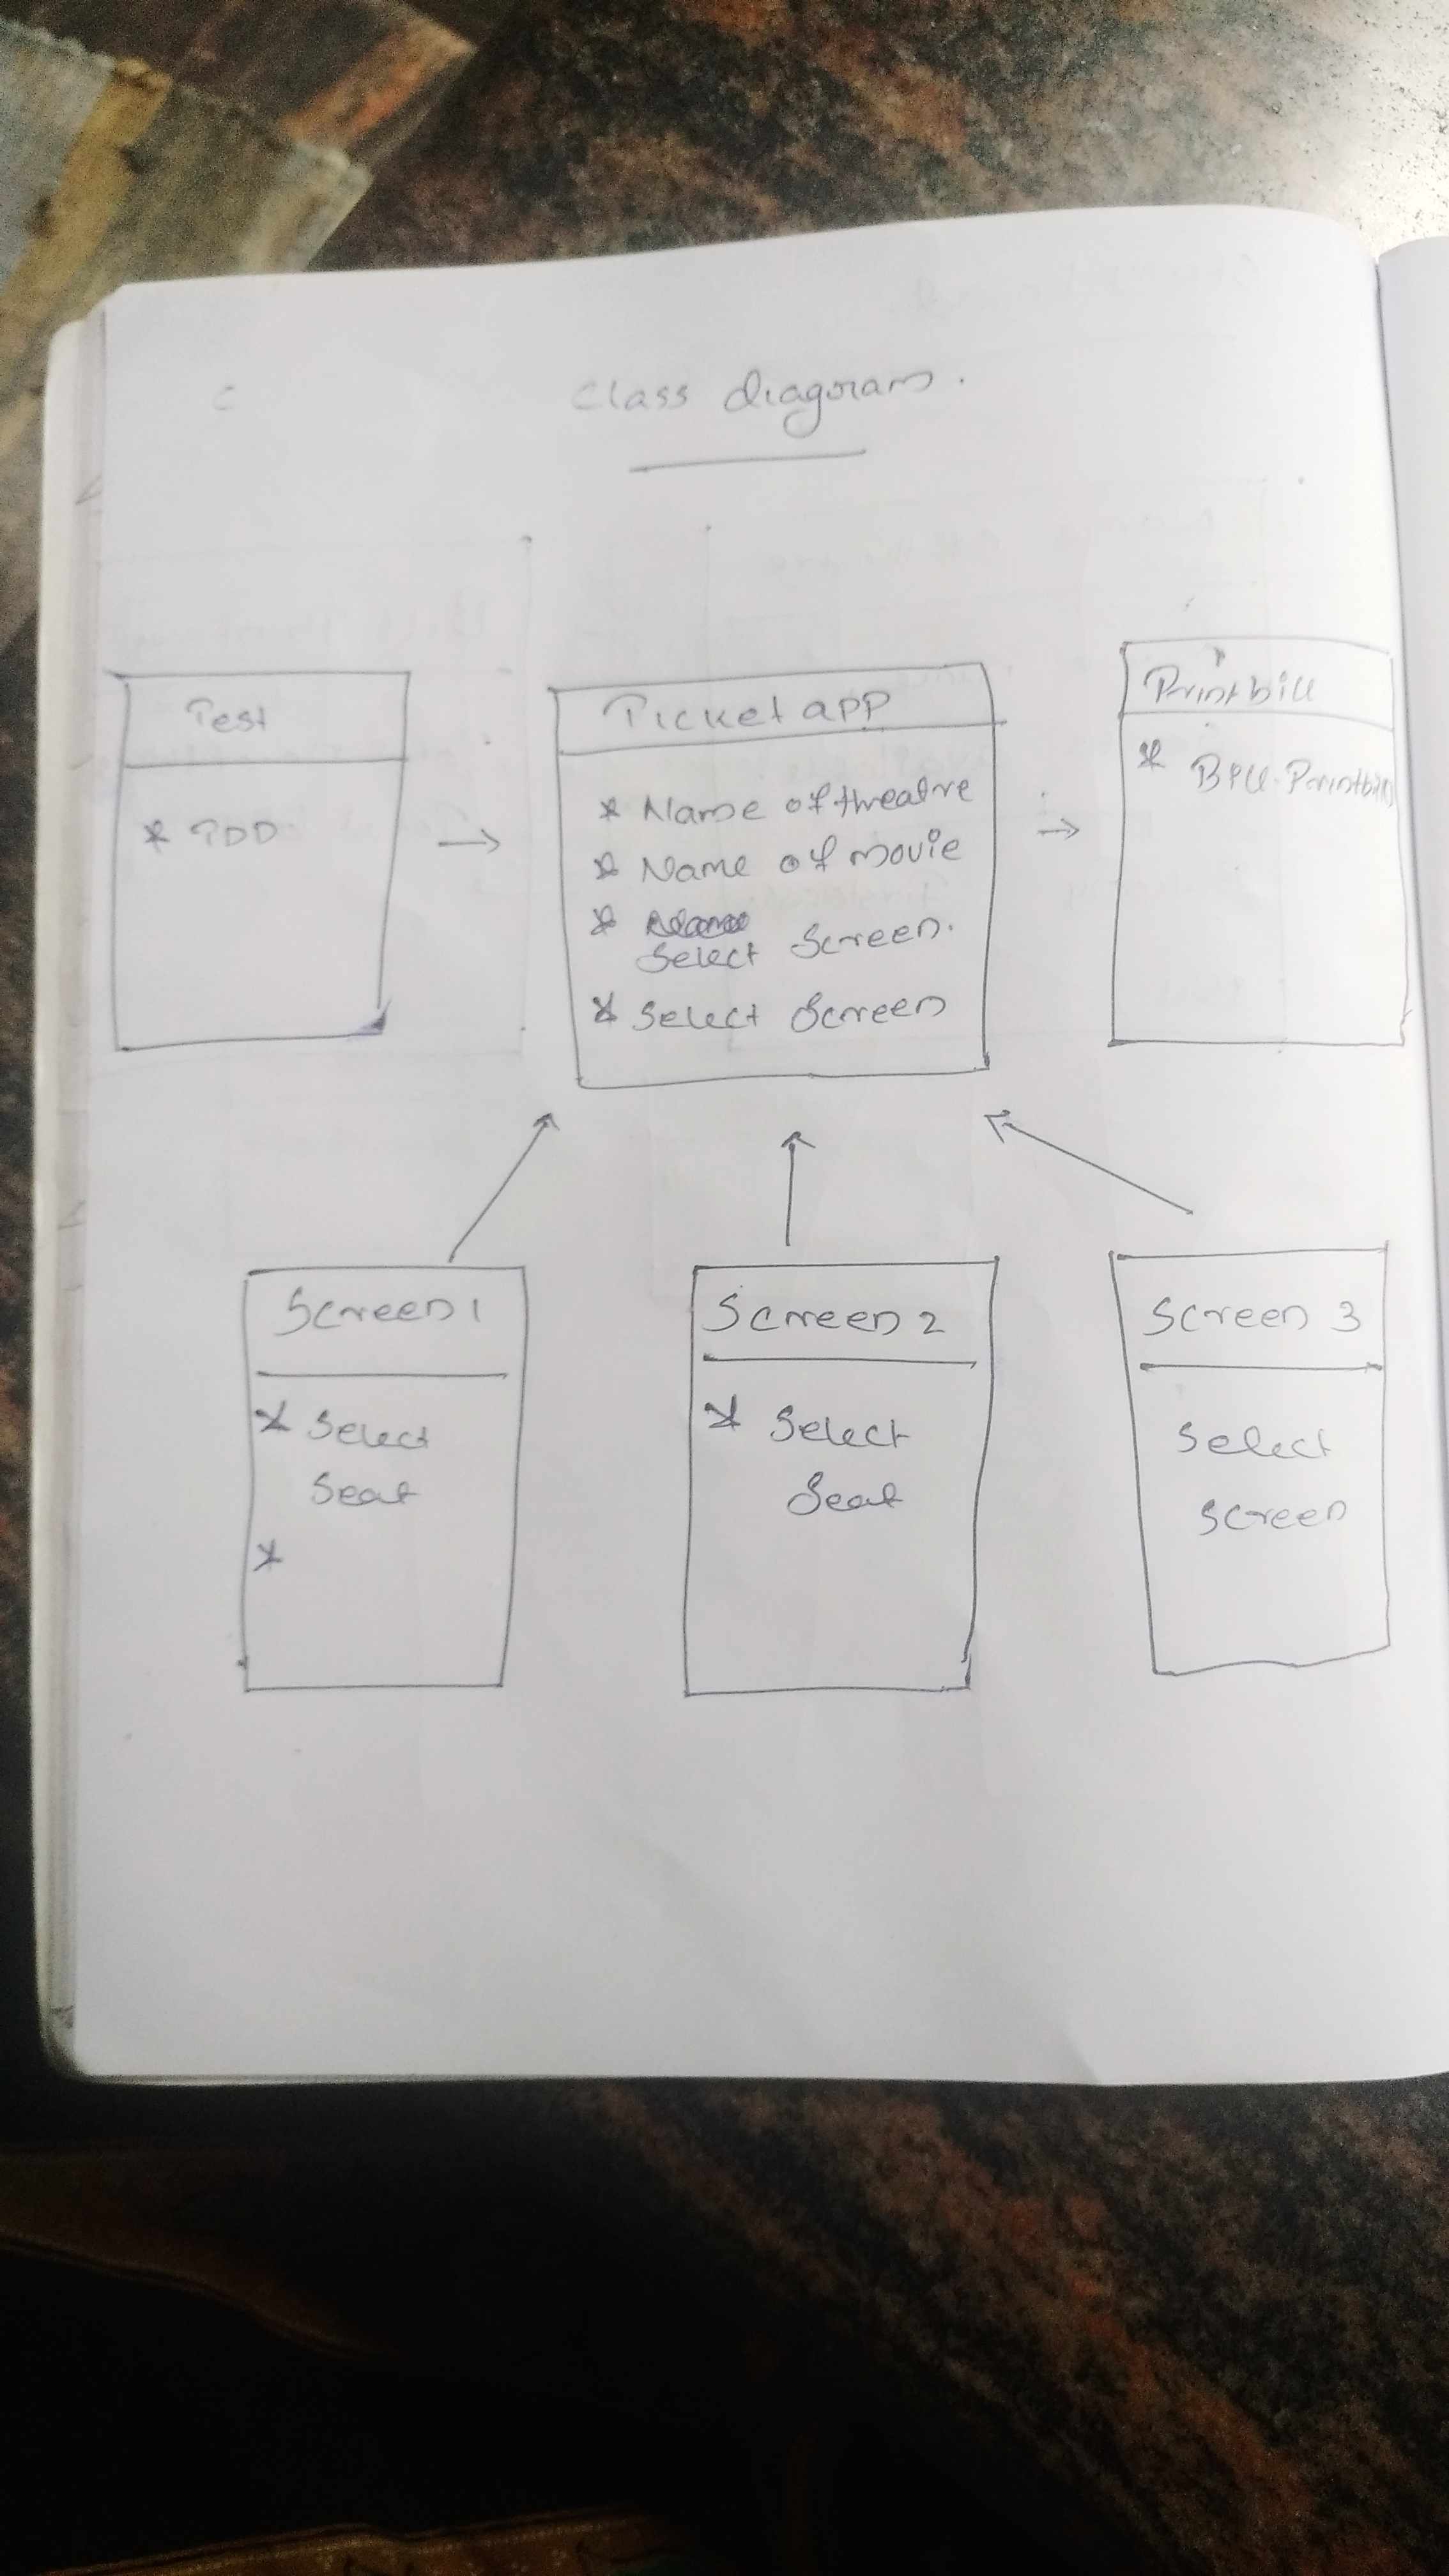 Class diagram.
Test
* TDD
Ticket app
* Name of threatre
* Name of movie
*
Select Screen.
* Select Screen
Print bill
* Bill.Printbill()
Screen 1
* Select
Seat
*
Screen 2
* Select
Seat
Screen 3
Select
Screen